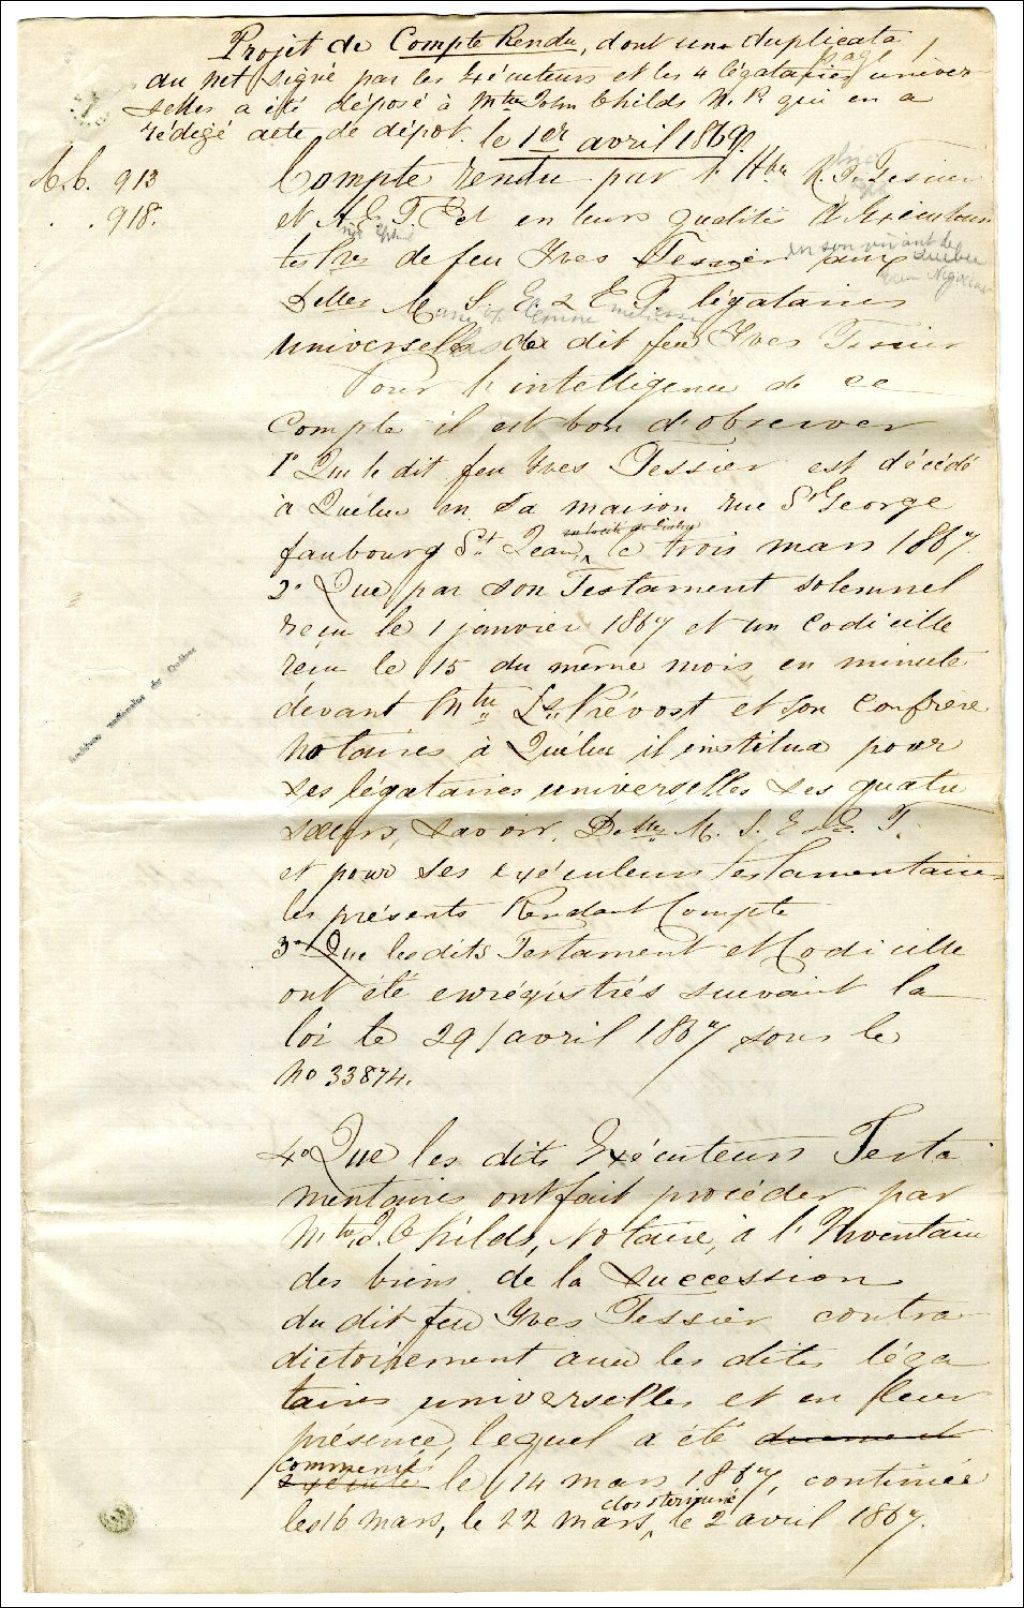 Projet de Compte Rendu, dont une duplicata
au net signé par les Exécuteurs et les 4 légataires univer
selles a été déposé à Mtre John Childs N. P. qui en a
rédigé acte de dépot. le 1er avril 1869.
913 Compte rendu par l'Hble U. J. Tessier
918. et A. E. T. en leurs qualités d'Exécuteurs
tesres de feu Yves Tessier en son vivant de Québec aux
Delles M. S. E. & E. T. légataires
universelles du dit feu Yves Tessier
Pour l'intelligence de ce
Compte il est bon d'observer
1° Que le dit feu Yves Tessier est décédé
à Québec en sa maison rue St George
faubourg St Jean, le trois mars 1867
2° Que par son Testament solemnel
reçu le 1 janvier 1867 et un codicille
reçu le 15 du même mois, en minute
devant Mtre Ls Prévost et son Confrère
Notaires à Québec il institua pour
ses légataires universelles ses quatre
sœurs, savoir, Delles M. S. E & E. T.
et pour ses exécuteurs testamentaires
les présents Rendant Compte
3° Que les dits Testament et Codicille
ont été enrégistrés suivant la
loi le 29 avril 1867 sous le
No 33874.
4° Que les dits Exécuteurs Testa
mentaires ont fait procéder par
Mtre J. Childs, Notaire, à l'Inventaire
des biens de la Succession
du dit feu Yves Tessier contra
dictoirement avec les dites léga
taires universelles et en leur
présence, lequel a été duement
commencé exécuté le 14 mars 1867, continué
le 16 mars, le 22 mars, clos & terminé le 2 avril 1867.